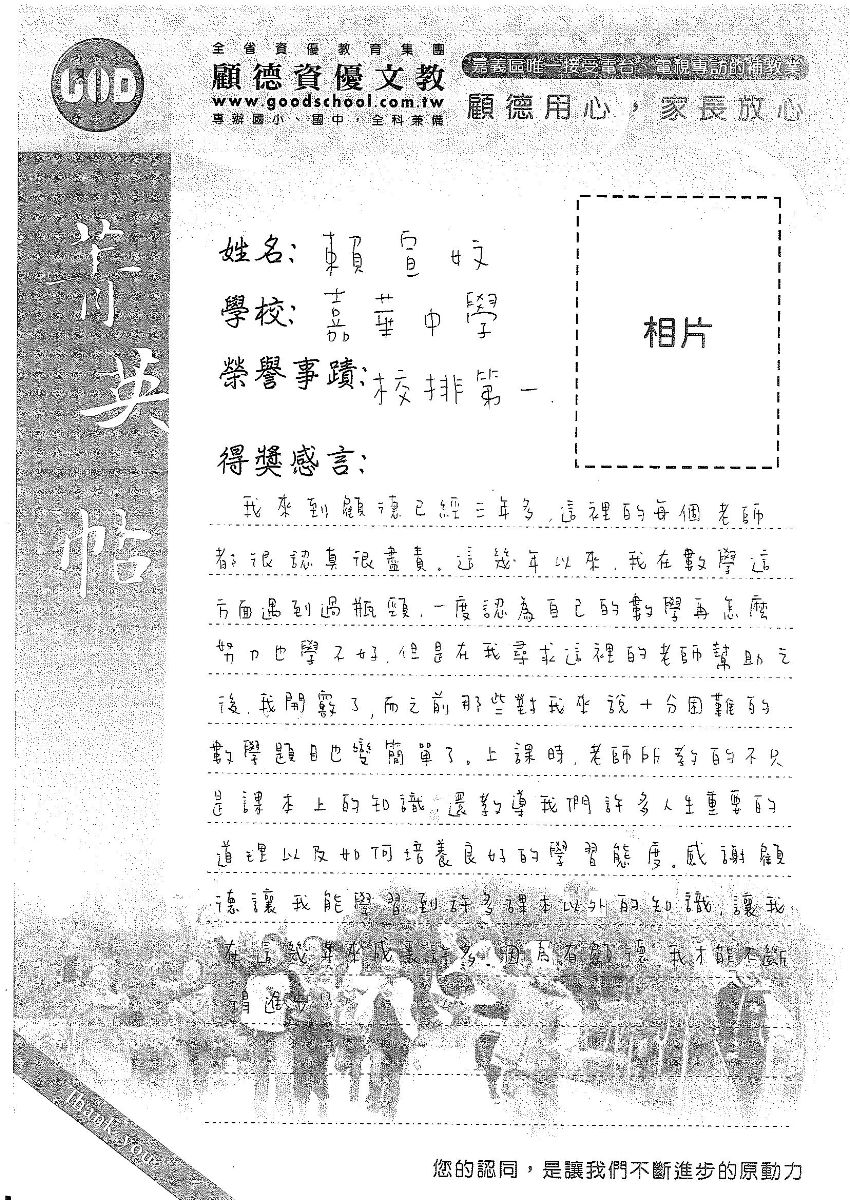 GOOD
全省資優教育集團
顧德資優文教
www.goodschool.com.tw
專辦國小、國中,全科兼備
嘉義區唯一接受電台、電視專訪的補教
顧德用心,家長放心
菁英帖
姓名: 賴宣妏
學校: 嘉華中學
榮譽事蹟: 校排第一.
相片
得獎感言:
我來到顧德已經三年多,這裡的每個老師
都很認真很盡責。這幾年以來,我在數學這
方面遇到過瓶頸,一度認為自己的數學再怎麼
努力也學不好,但是在我尋求這裡的老師幫助之
後,我開竅了,而之前那些對我來說十分困難的
數學題目也變簡單了。上課時,老師所教的不只
是課本上的知識,還教導我們許多人生重要的
道理以及如何培養良好的學習態度。感謝顧
德讓我能學習到許多課本以外的知識,讓我
在這幾年來成長許多,因為有顧德,我才能不斷
得進步
Thank you
您的認同,是讓我們不斷進步的原動力